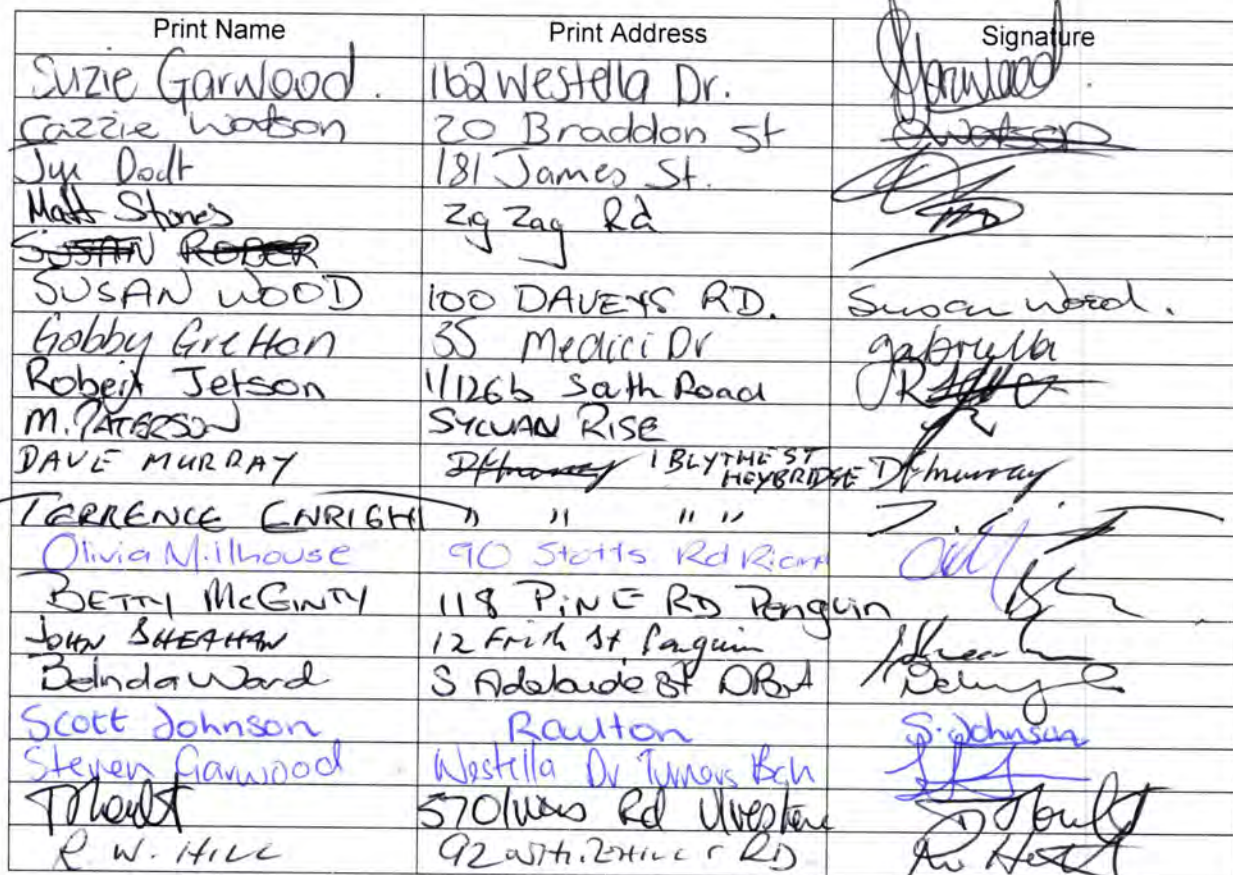 Print Name Print Address Signature
Suzie Garwood. 162 Westella Dr. Garwood
Cazzie Watson 20 Braddon St CWatson
Jye Dodt 181 James St.
Matt Stones Zig Zag Rd
SUSAN
SUSAN WOOD 100 DAVEYS RD. Susan Wood.
Gabby Gretton 35 Medici Dr gabriella
Robert Jetson 1/126b South Road
M. PATERSON SYLVAN RISE
DAVE MURRAY 1 BLYTHE ST HEYBRIDGE Dfmurray
TERRENCE ENRIGHT " " " "
Olivia Millhouse 90 Stotts Rd Riana
BETTY McGINTY 118 PINE RD Penguin
JOHN SHEAHAN 12 Frith St. Penguin
Belinda Ward 5 Adelaide St DPort
Scott Johnson S. Johnson
Steven Garwood Westella Dr Turners Bch
Rd Ulverstone
R W. HILL 92 RD